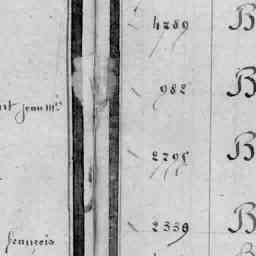 4289 B
982 B
art jean m.
2295 B
2339 B
françois